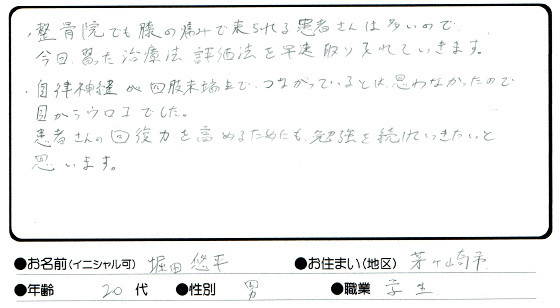 ・整骨院でも膝の痛みで来られる患者さんは多いので
今日、習った治療法 評価法を早速取り入れていきます。
・自律神経が四肢末端まで、つながっているとは、思わなかったので
目からウロコでした。
患者さんの回復力を高めるためにも、勉強を続けていきたいと
思います。
●お名前(イニシャル可) 堀田 悠平 ●お住まい(地区) 茅ヶ崎市
●年齢 20 代 ●性別 男 ●職業 学生